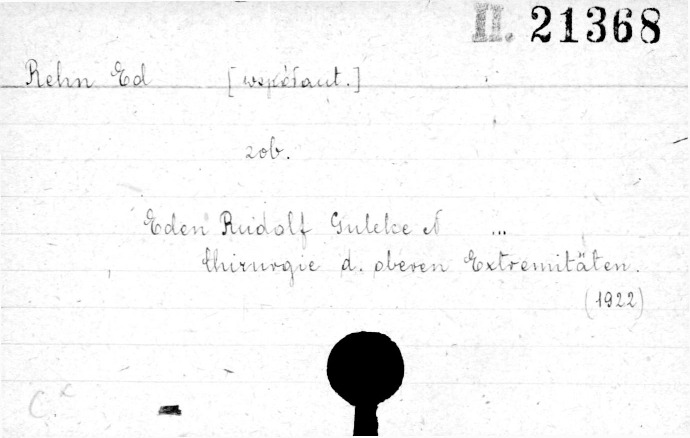 II. 21368
Rehn Ed [współaut.]
zob.
Eden Rudolf Guleke N ...
Chirurgie d. oberen Extremitäten.
(1922)
C.